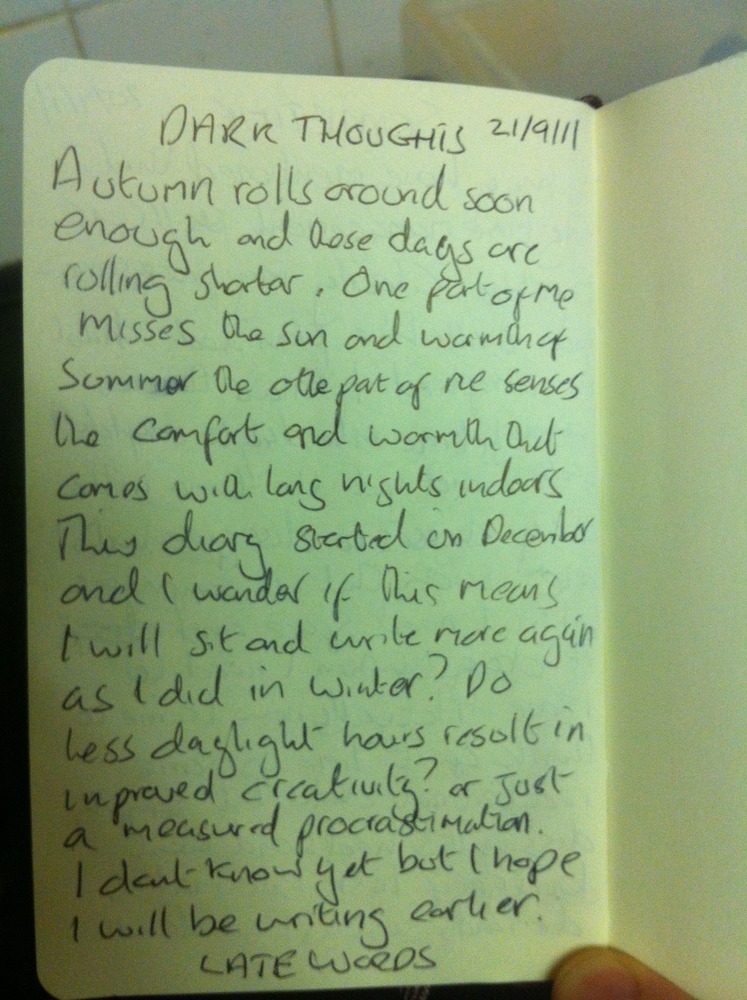 DARK THOUGHTS 21/9/11
Autumn rolls around soon
enough and those days are
rolling shorter. One part of me
misses the sun and warmth of
Summer the othe part of me senses
the comfort and warmth that
comes with long nights indoors
This diary started in December
and I wonder if this means
I will sit and write more again
as I did in winter? Do
less daylight hours result in
improved creativity? or just
a measured procrastination.
I don't know yet but I hope
I will be writing earlier.
LATE WORDS